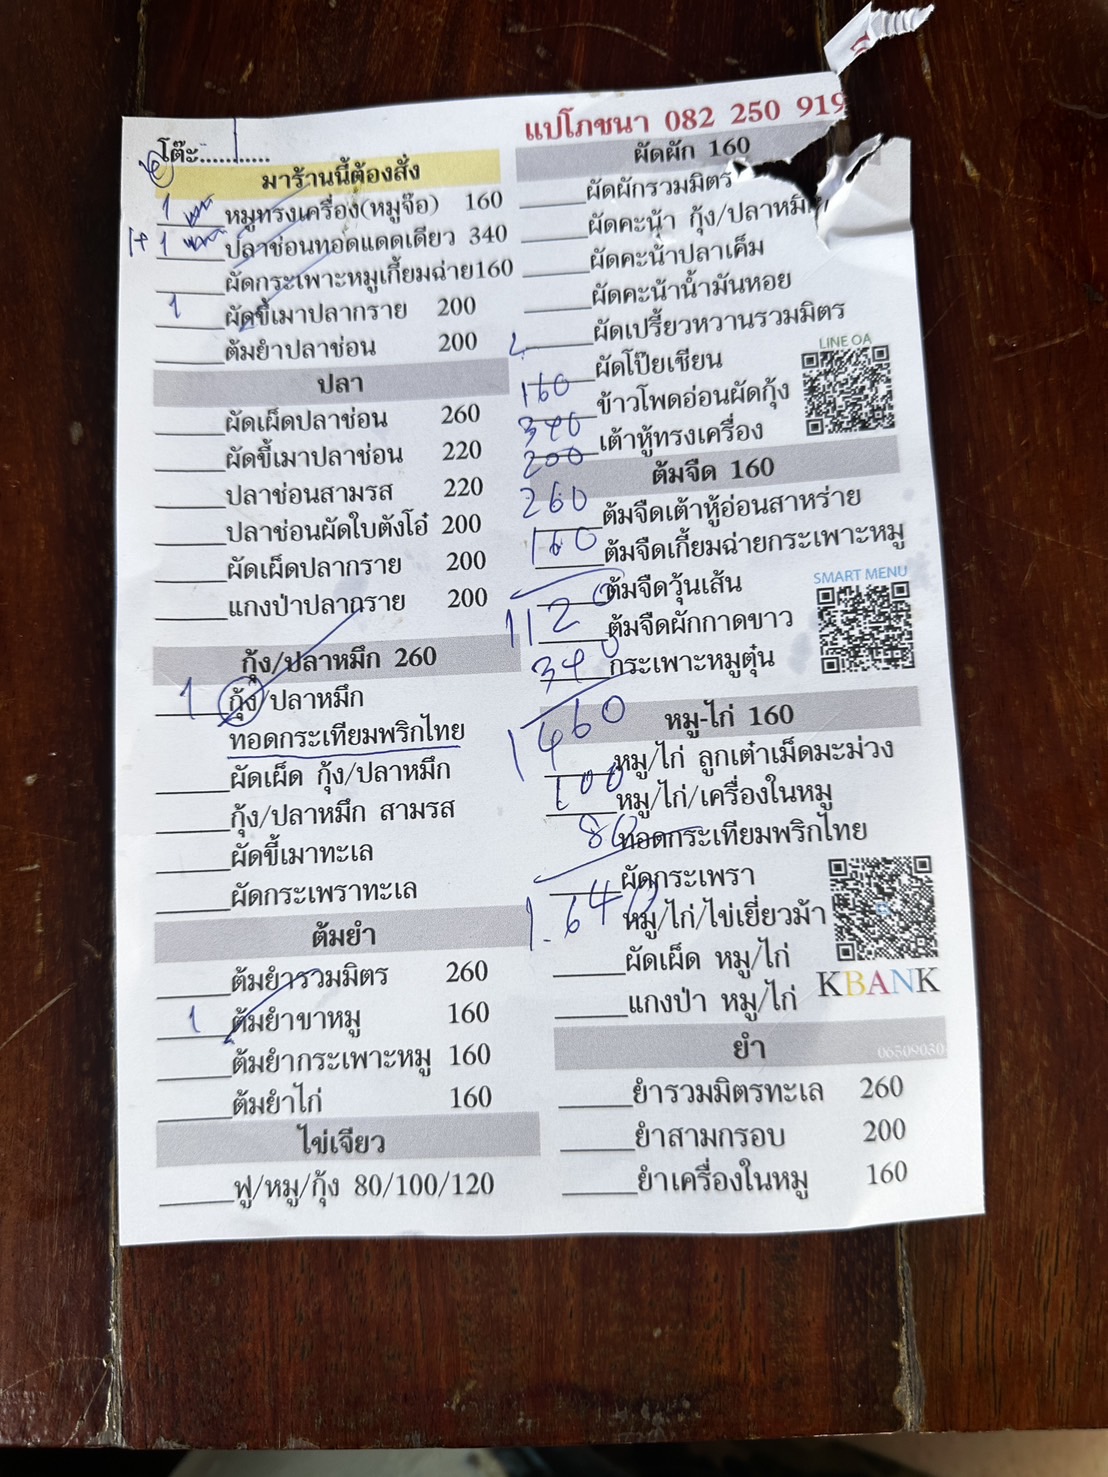 โต๊ะ............
มาร้านนี้ต้องสั่ง
1 หมูทรงเครื่อง(หมูจ๊อ) 160
1+1 ปลาช่อนทอดแดดเดียว 340
ผัดกระเพาะหมูเกี้ยมฉ่าย160
1 ผัดขี้เมาปลากราย 200
ต้มยำปลาช่อน 200
ปลา
ผัดเผ็ดปลาช่อน 260
ผัดขี้เมาปลาช่อน 220
ปลาช่อนสามรส 220
ปลาช่อนผัดใบตังโอ๋ 200
ผัดเผ็ดปลากราย 200
แกงป่าปลากราย 200
กุ้ง/ปลาหมึก 260
1 กุ้ง/ปลาหมึก
ทอดกระเทียมพริกไทย
ผัดเผ็ด กุ้ง/ปลาหมึก
กุ้ง/ปลาหมึก สามรส
ผัดขี้เมาทะเล
ผัดกระเพราทะเล
ต้มยำ
ต้มยำรวมมิตร 260
1 ต้มยำขาหมู 160
ต้มยำกระเพาะหมู 160
ต้มยำไก่ 160
ไข่เจียว
ฟู/หมู/กุ้ง 80/100/120
แปโภชนา 082 250 919
ผัดผัก 160
ผัดผักรวมมิตร
ผัดคะน้า กุ้ง/ปลาหมึก
ผัดคะน้าปลาเค็ม
ผัดคะน้าน้ำมันหอย
ผัดเปรี้ยวหวานรวมมิตร
LINE OA
ผัดโป๊ยเซียน
160
ข้าวโพดอ่อนผัดกุ้ง
340
เต้าหู้ทรงเครื่อง
200
ต้มจืด 160
260
ต้มจืดเต้าหู้อ่อนสาหร่าย
160
ต้มจืดเกี้ยมฉ่ายกระเพาะหมู
SMART MENU
ต้มจืดวุ้นเส้น
1120
ต้มจืดผักกาดขาว
340
กระเพาะหมูตุ๋น
1460
หมู-ไก่ 160
หมู/ไก่ ลูกเต๋าเม็ดมะม่วง
100
หมู/ไก่/เครื่องในหมู
80
ทอดกระเทียมพริกไทย
ผัดกระเพรา
1.640
หมู/ไก่/ไข่เยี่ยวม้า
ผัดเผ็ด หมู/ไก่
KBANK
แกงป่า หมู/ไก่
ยำ
06309030
ยำรวมมิตรทะเล 260
ยำสามกรอบ 200
ยำเครื่องในหมู 160